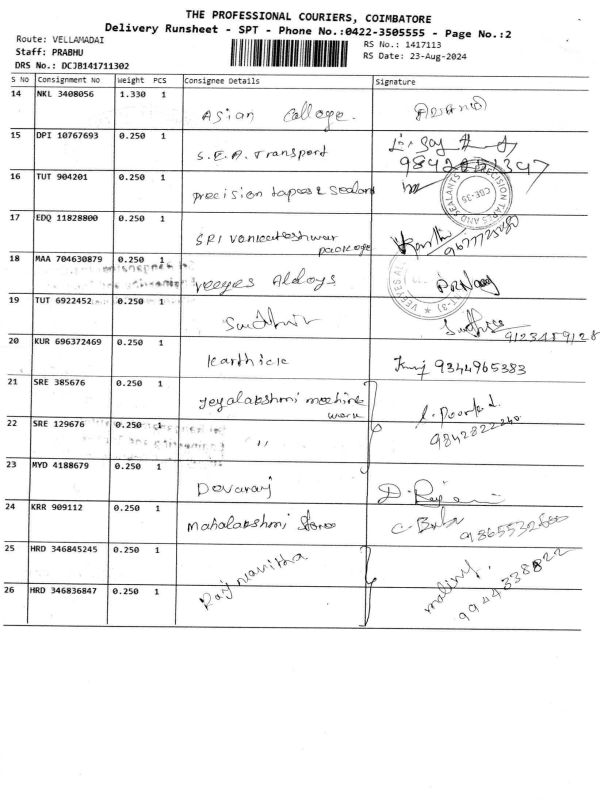 THE PROFESSIONAL COURIERS, COIMBATORE
Delivery Runsheet - SPT - Phone No.:0422-3505555 - Page No.:2
Route: VELLAMADAI
RS No.: 1417113
Staff: PRABHU
RS Date: 23-Aug-2024
DRS No.: DCJB141711302
S No Consignment No Weight PCS Consignee Details Signature
14 NKL 3408056 1.330 1
Asian College.
15 DPI 10767693 0.250 1
S.E.A. Transport
16 TUT 904201 0.250 1
precision tapes & Sealant
17 EDQ 11828800 0.250 1
SRI vankateshwar
package
9677725280
18 MAA 704630879 0.250 1
veeyes Alloys
19 TUT 6922452 0.250 1
Sudhir
9123459128
20 KUR 696372469 0.250 1
Karthick 9344965383
21 SRE 385676 0.250 1
Jeyalakshmi machine
work
9842822240
22 SRE 129676 0.250 1
"
23 MYD 4188679 0.250 1
Devaraj
24 KRR 909112 0.250 1
Mahalakshmi Stores
9865532600
25 HRD 346845245 0.250 1
26 HRD 346836847 0.250 1
9944338822